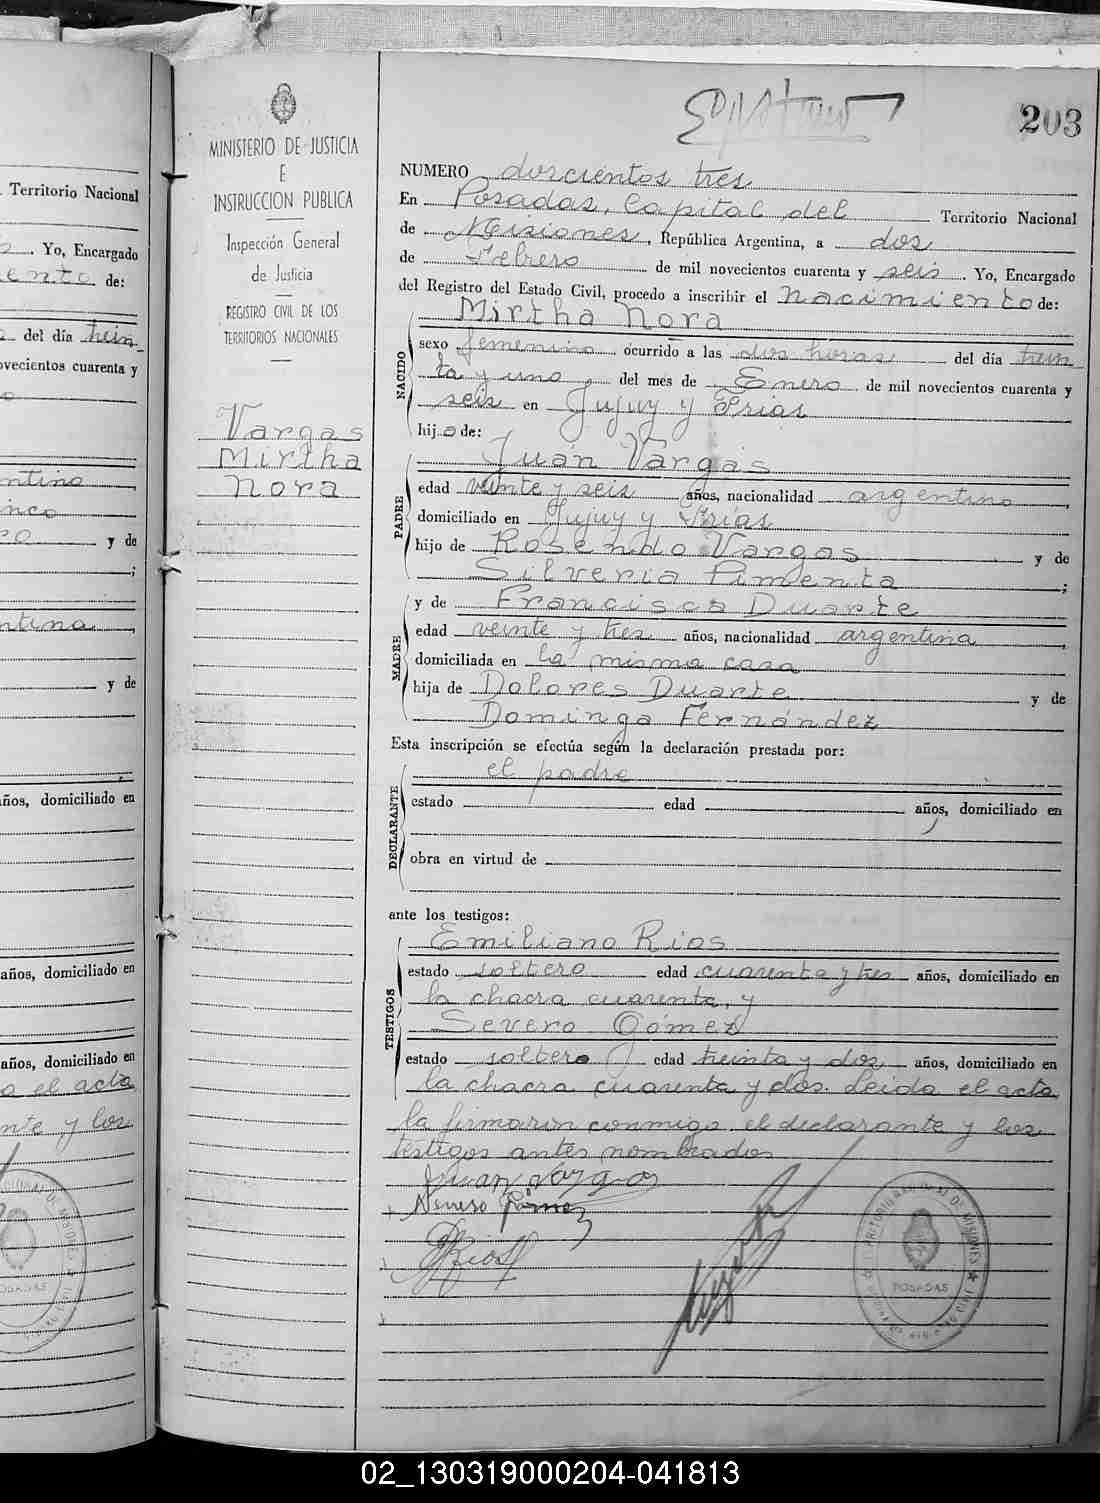 Territorio Nacional
Yo, Encargado
ento de:
del día trein
ovecientos cuarenta y
ntino,
inco
ro y de
;
ntina,
y de
años, domiciliado en
años, domiciliado en
años, domiciliado en
a el acta
nte y los
MINISTERIO DE JUSTICIA
E
INSTRUCCION PUBLICA
Inspección General
de Justicia
REGISTRO CIVIL DE LOS
TERRITORIOS NACIONALES
Vargas
Mirtha
Nora
203
NUMERO doscientos tres
En Posadas, Capital del Territorio Nacional
de Misiones, República Argentina, a dos
de Febrero de mil novecientos cuarenta y seis. Yo, Encargado
del Registro del Estado Civil, procedo a inscribir el nacimiento de:
Mirtha Nora
NACIDO
sexo femenino ocurrido a las dos horas del día trein
ta y uno, del mes de Enero de mil novecientos cuarenta y
seis en Jujuy y Frias
hij a de:
Juán Vargas
PADRE
edad veinte y seis años, nacionalidad argentino,
domiciliado en Jujuy y Frías
hijo de Rosendo Vargas y de
Silveria Pimenta;
y de Francisca Duarte
MADRE
edad veinte y tres años, nacionalidad argentina,
domiciliada en la misma casa
hija de Dolores Duarte y de
Dominga Fernández
Esta inscripción se efectúa según la declaración prestada por:
el padre
DECLARANTE
estado edad años, domiciliado en
obra en virtud de
ante los testigos:
Emiliano Rios
TESTIGOS
estado soltero edad cuarenta y tres años, domiciliado en
la chacra cuarenta, y
Severo Gómez
estado soltero edad treinta y dos años, domiciliado en
la chacra cuarenta y dos. Leida el acta
la firmaron conmigo el declarante y los
testigos antes nombrados
Juan Vargas
Severo Gómez
ERios
POSADAS
02_130319000204-041813